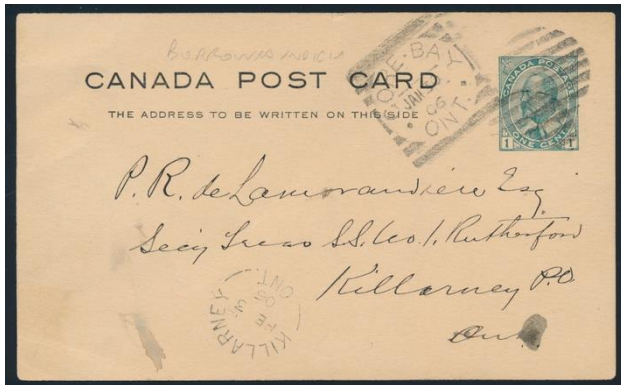 CANADA POST CARD
THE ADDRESS TO BE WRITTEN ON THIS SIDE
GORE BAY
JAN
06
ONT.
CANADA POSTAGE
1 ONE CENT 1
P. R. de Lamorandiere Esq
Secy Treas S.S. No. 1, Rutherford
Killarney P.O
Ont
KILLARNEY
FE 3
06
ONT.